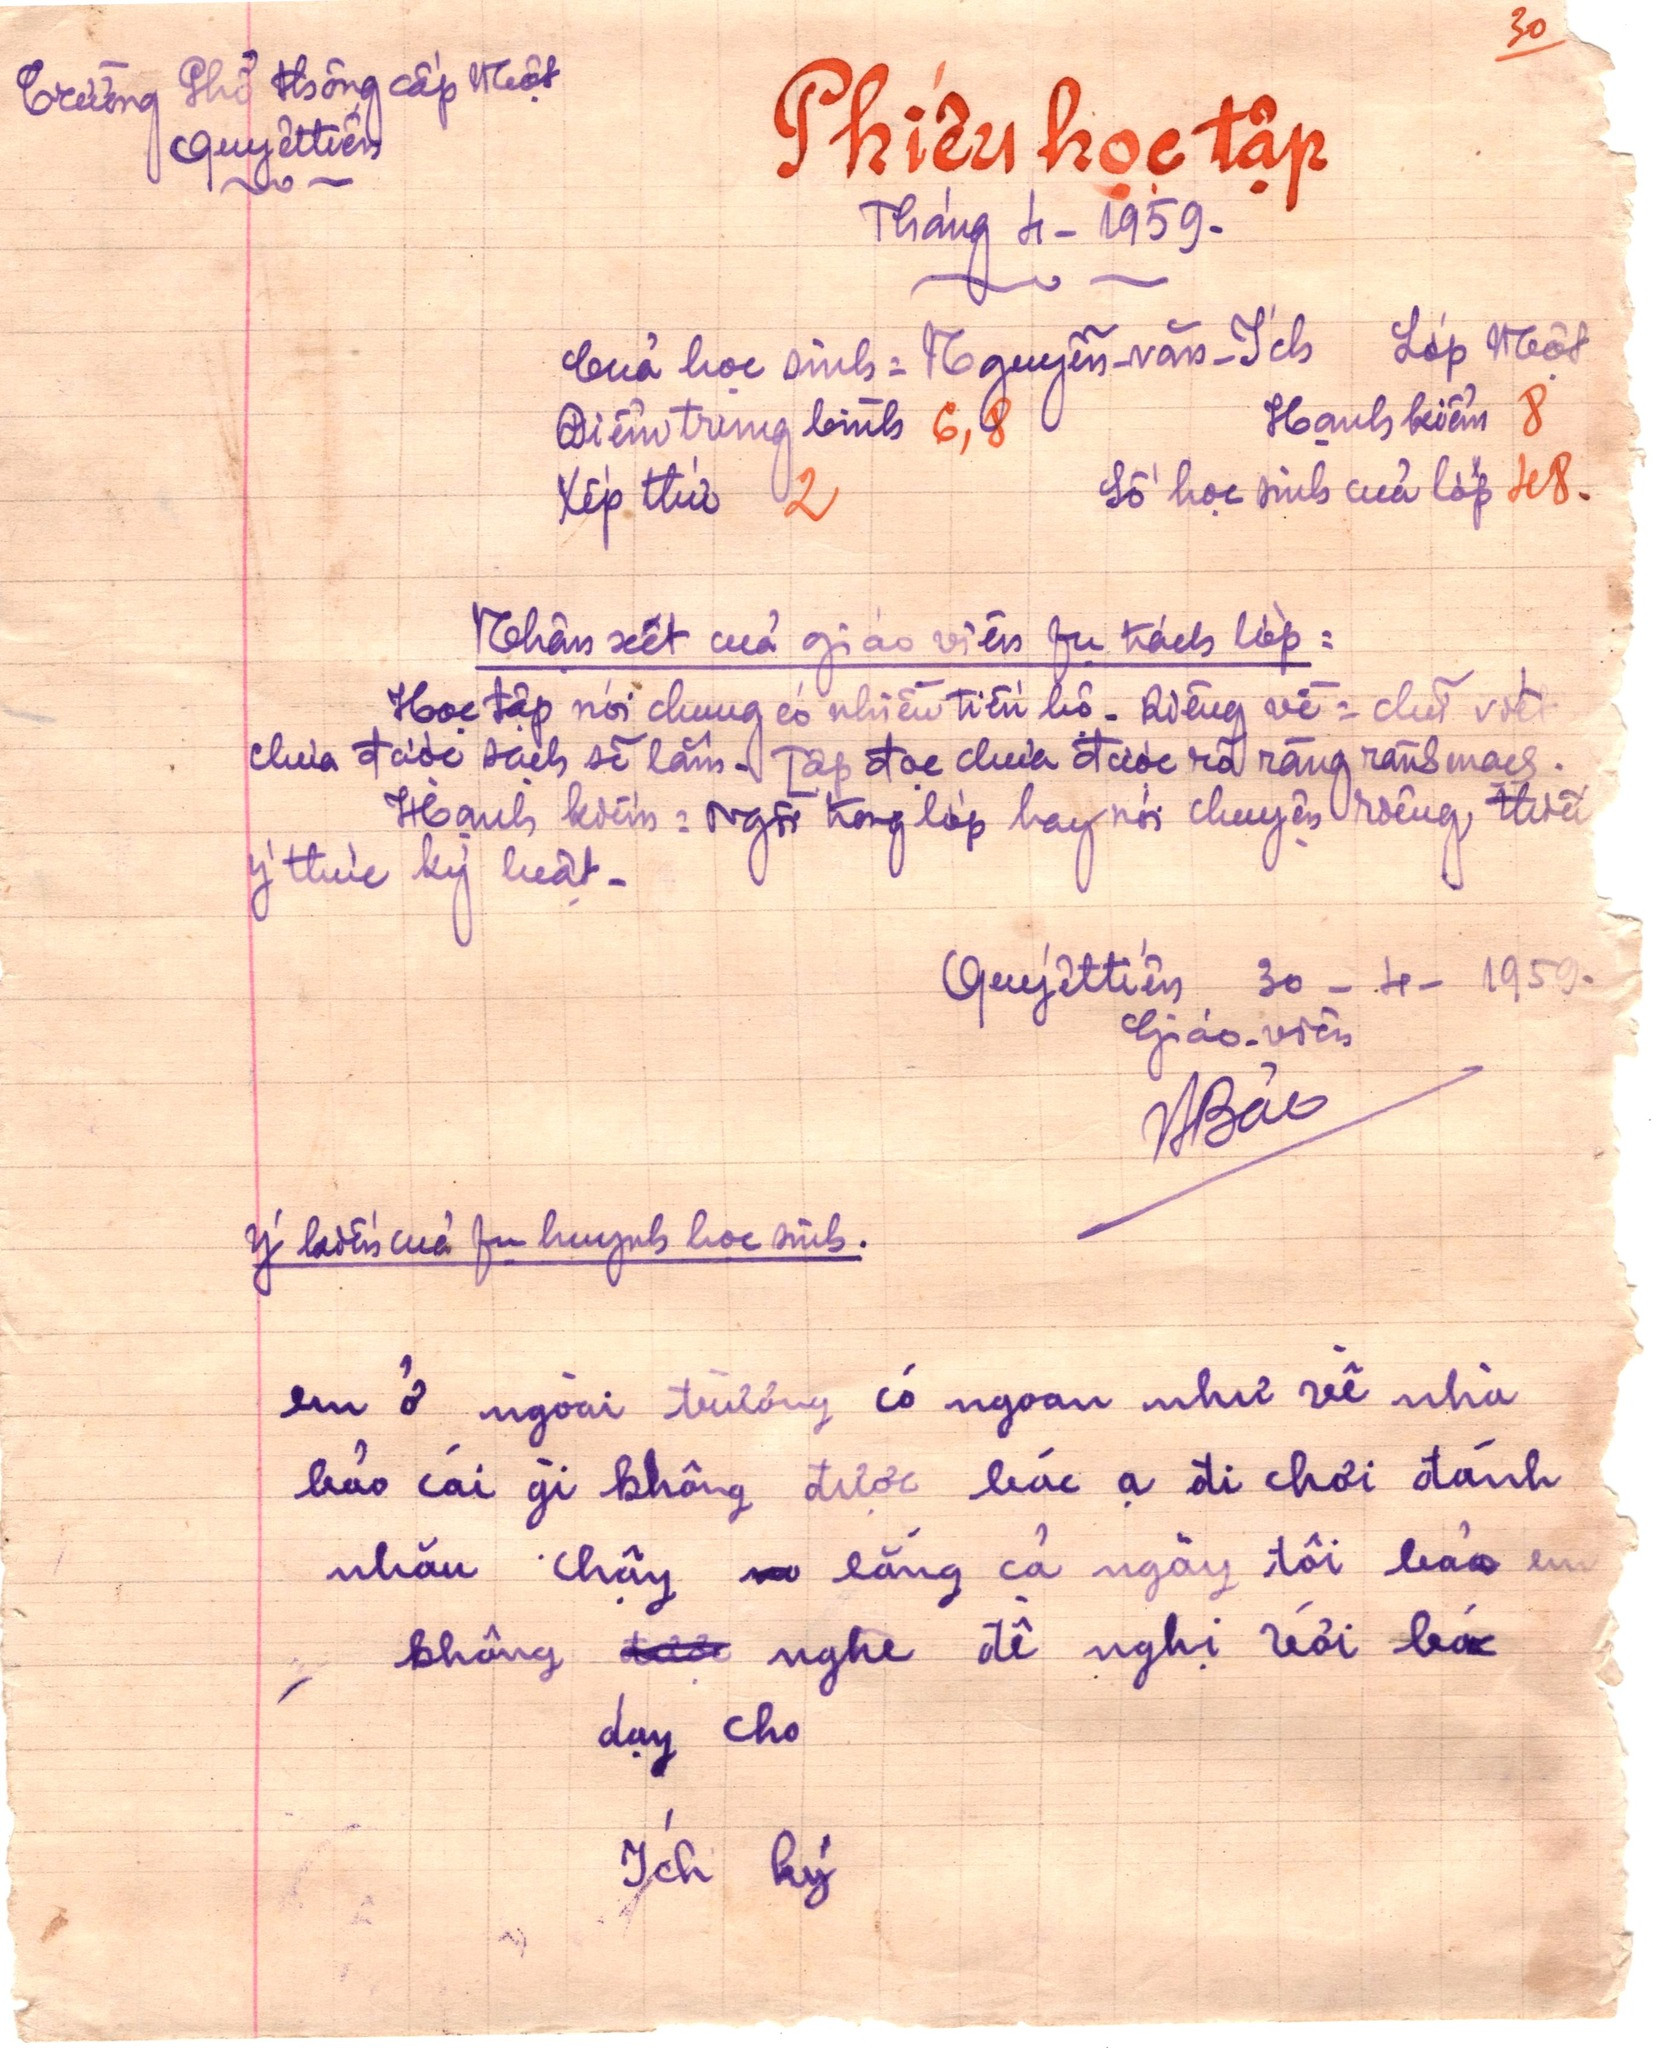 30
Trường Phổ thông cấp Một
Quyết tiến
Phiếu học tập
Tháng 4 - 1959.
Của học sinh = Nguyễn - văn - Ích Lớp Một
Điểm trung bình 6,8 Hạnh kiểm 8
Xếp thứ 2 Số học sinh của lớp 48.
Nhận xét của giáo viên fụ trách lớp =
Học tập nói chung có nhiều tiến bộ - Riêng về = chữ viết
chưa được sạch sẽ lắm - Tập đọc chưa được rõ ràng rành mạch.
Hạnh kiểm = Ngồi trong lớp hay nói chuyện riêng, thiếu
ý thức kỷ luật -
Quyết tiến 30 - 4 - 1959.
Giáo - viên
Bảo
Ý kiến của fụ huynh học sinh.
em ở ngoài trường có ngoan như về nhà
bảo cái gì không được bác ạ đi chơi đánh
nhău chậy lăng cả ngày tôi bảo em
không nghe đề nghị với bác
dạy cho
Ích ký